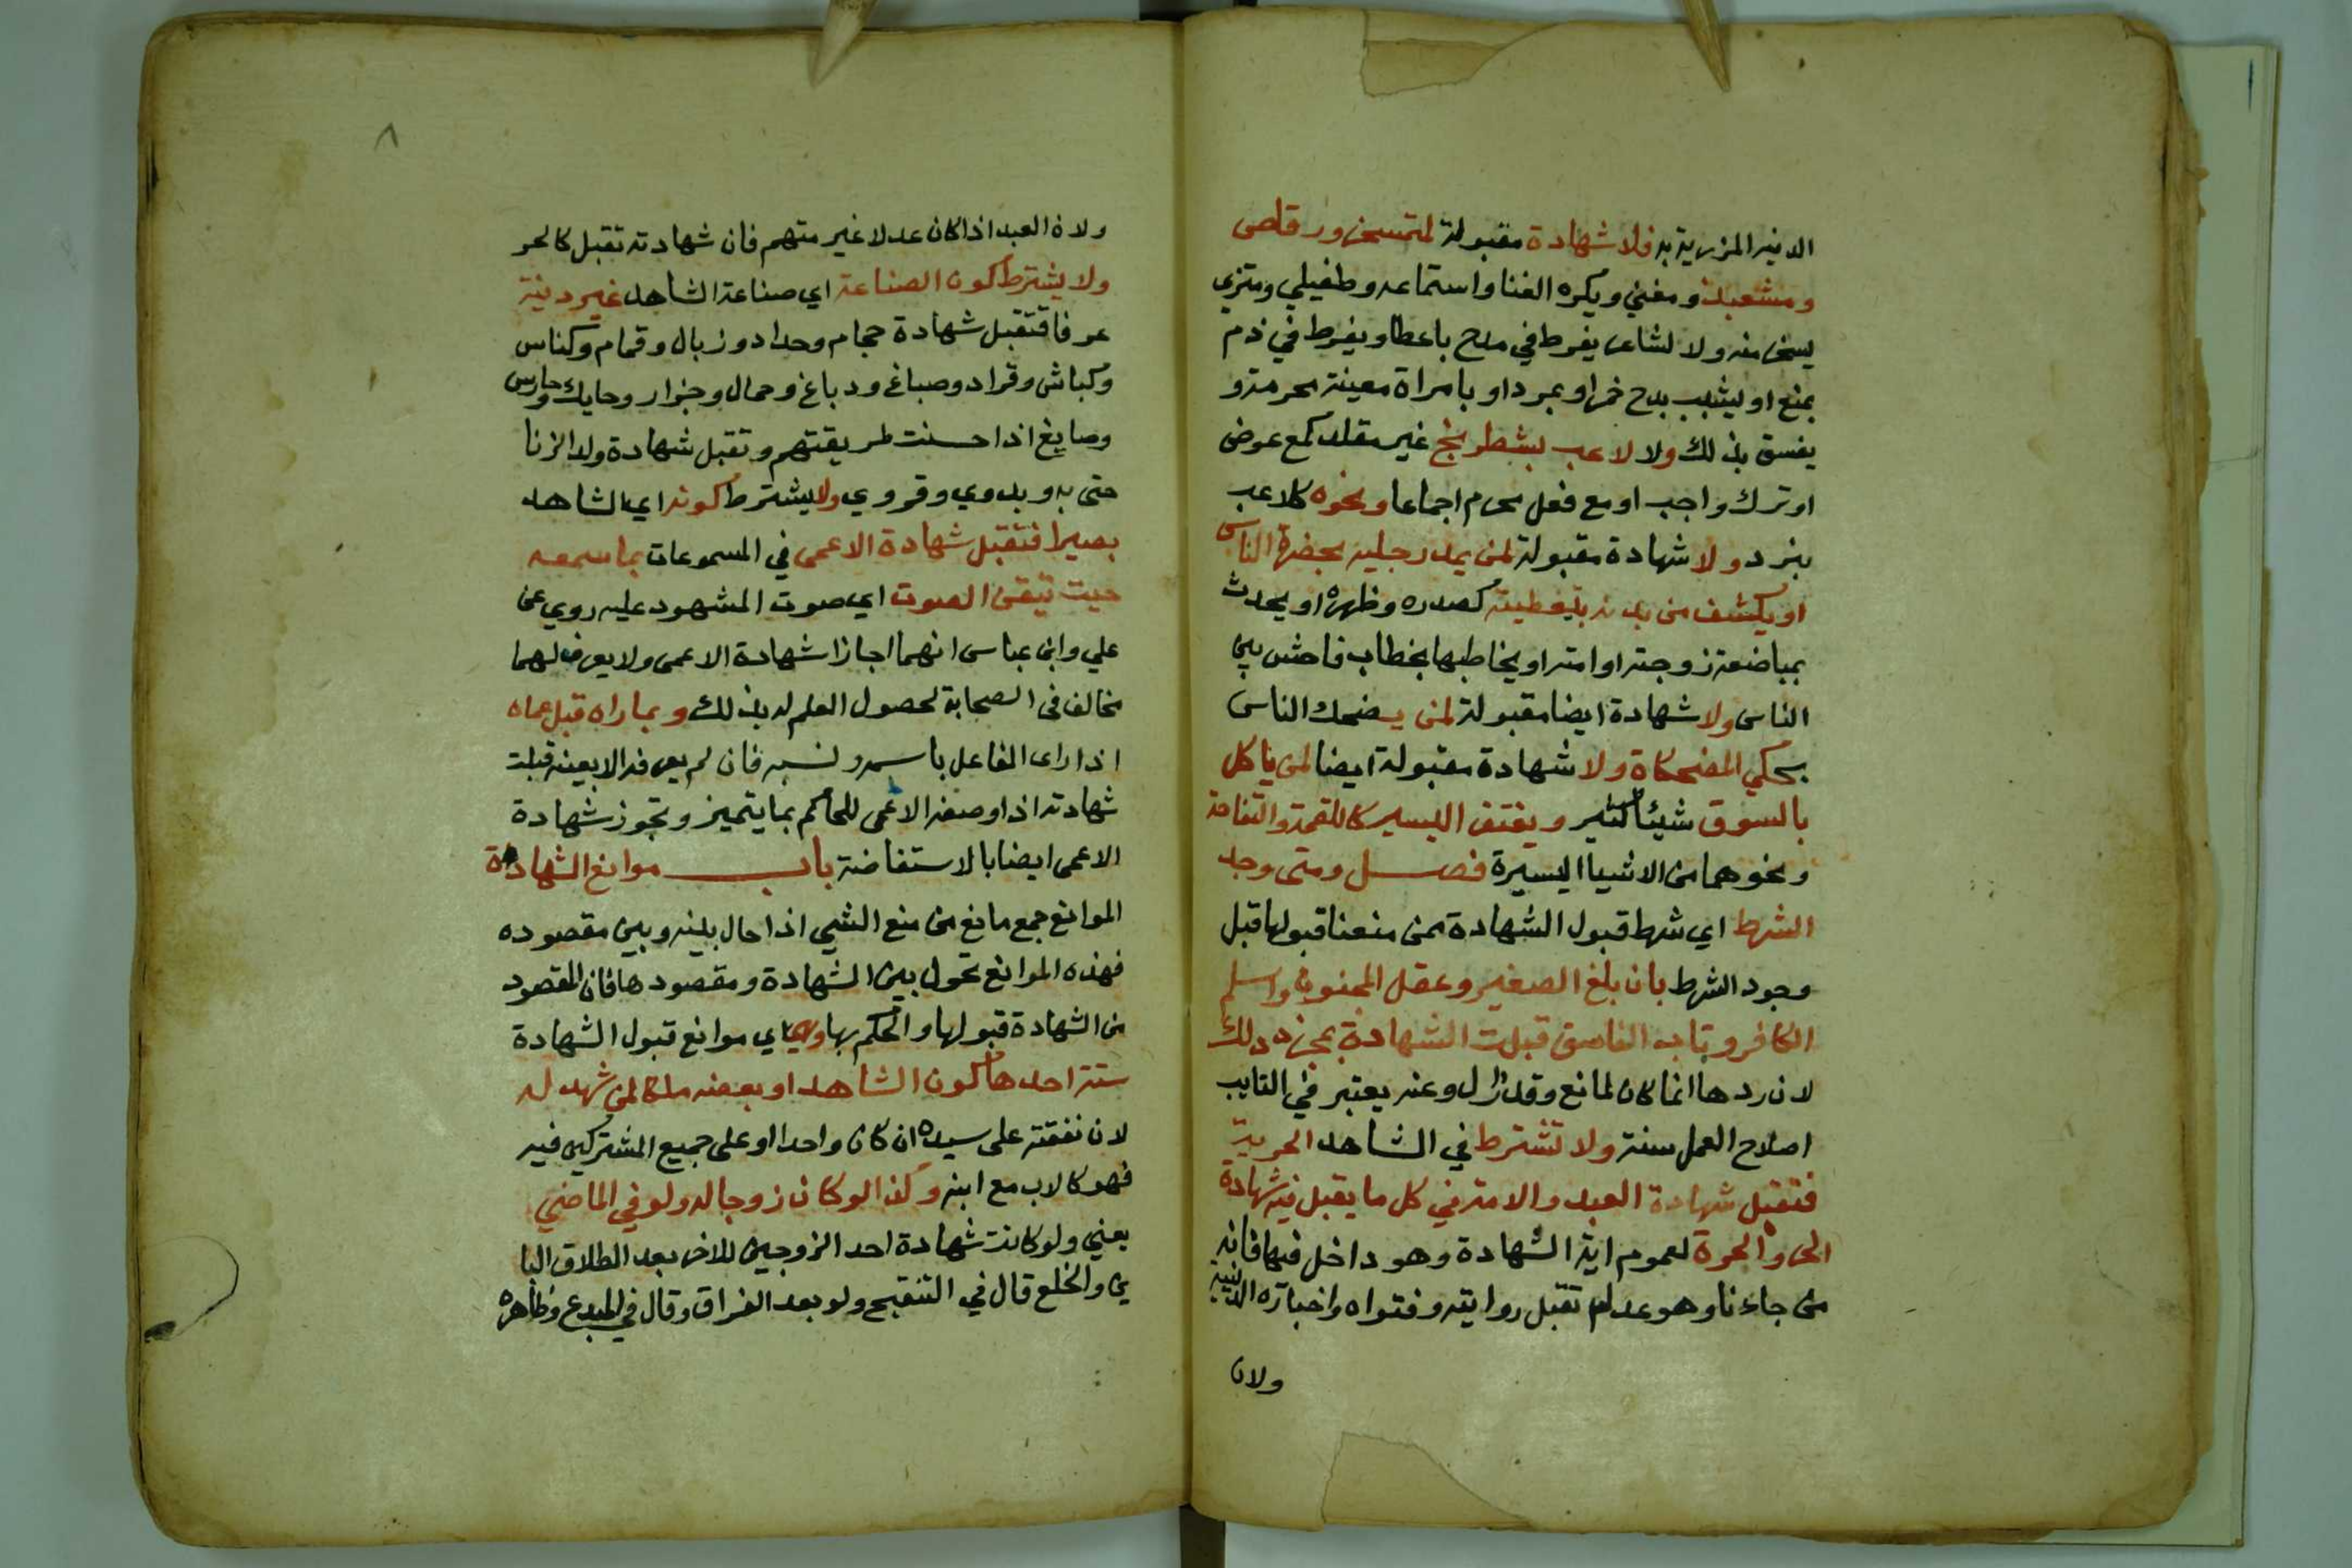 الدنيه المزرية به فلا شهادة مقبولة لمتمسخر ورقاص
ومشعبذ ومغني ويكره الغنا واستماعه وطفيلي ومتزي
يسخر منه ولا لشاعر يفرط في مدح باعطا ويفرط في ذم
بمنع او يشبب بمدح خمر او بمرد او بامراة معينة محرمة و
يفسق بذلك ولا لاعب بشطرنج غير مقلد كمع عوض
او ترك واجب او مع فعل محرم اجماعا ونحوه كلاعب
بنرد ولا شهادة مقبولة لمن يمد رجليه بحضرة الناس
او يكشف من بدنه بتغطيته كصدره وظهره او يحدث
بمباضعة زوجته او امته او يخاطبها بخطاب فاحش بين
الناس ولا شهادة ايضا مقبولة لمن يضحك الناس
بحكي المضحكاة ولا شهادة مقبولة ايضا لمن ياكل
بالسوق شيئا كثير ويغتفر اليسير كاللقمة والتفاحة
ونحوهما من الاشياء اليسيرة فصل ومتى وجد
الشرط اي شرط قبول الشهادة ممن منعنا قبولها قبل
وجود الشرط بان بلغ الصغير وعقل المجنون واسلم
الكافر وتاب الفاسق قبلت الشهادة بمجرد ذلك
لان ردها انما كان لمانع وقد زال وعنه يعتبر في التايب
اصلاح العمل سنة ولا تشترط في الشاهد الحرية
فتقبل شهادة العبد والامة في كل ما يقبل فيه شهادة
الحر والحرة لعموم اية الشهادة وهو داخل فيها فانه
من جاءنا وهو عدل تقبل روايته وفتواه واخباره الدينية
ولان
٨
ولان العبد اذا كان عدلا غير متهم فان شهادته تقبل كالحر
ولا يشترط كون الصناعة اي صناعة الشاهد غير دنية
عرفا فتقبل شهادة حجام وحداد وزبال وقمام وكناس
وكباش وقراد وصباغ ودباغ وحمال وجزار وحايك وحارس
وصايغ اذا حسنت طريقتهم وتقبل شهادة ولد الزنا
حتى به وبدوي وقروي ولا يشترط كونه اي الشاهد
بصيرا فتقبل شهادة الاعمى في المسموعات بما سمعه
حيث تيقن الصوت اي صوت المشهود عليه روي عن
علي وابن عباس انهما اجازا شهادة الاعمى ولا يعرف لهما
مخالف في الصحابة لحصول العلم له بذلك وبما راه قبل عماه
اذا راى الفاعل باسمه ونسبه فان لم يعرفه الا بعينه قبلت
شهادته اذا وصفه الاعمى للحاكم بما يتميز وتجوز شهادة
الاعمى ايضا بالاستفاضة باب موانع الشهادة
الموانع جمع مانع من منع الشي اذا حال بينه وبين مقصوده
فهذه الموانع تحول بين الشهادة ومقصودها فان المقصود
من الشهادة قبولها والحكم بها وهي اي موانع قبول الشهادة
ستة احدها كون الشاهد او بعضه ملكا لمن شهد له
لان نفقته على سيده ان كان واحدا او على جميع المشتركين فيه
فهو كالاب مع ابنه وكذا لو كان زوجا له ولو في الماضي
يعني ولو كانت شهادة احد الزوجين للاخر بعد الطلاق البا
ين والخلع قال في التنقيح ولو بعد الفراق وقال في المبدع وظاهره